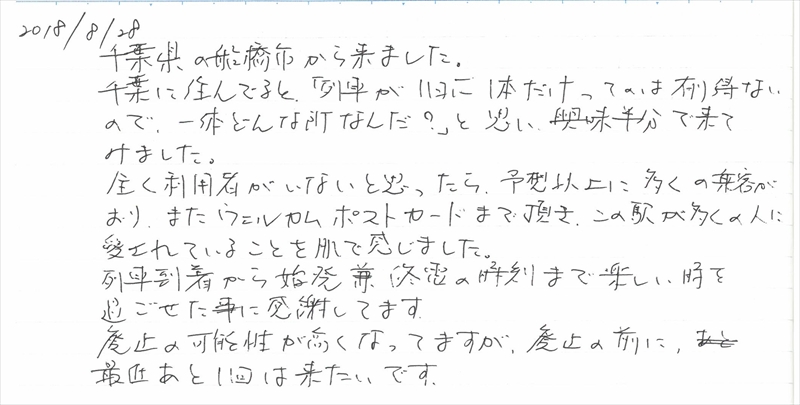 2018/8/28
千葉県の船橋市から来ました。
千葉に住んでると、「列車が1日に1本だけってのは有り得ない
ので、一体どんな所なんだ?」と思い、興味半分で来て
みました。
全く利用者がいないと思ったら、予想以上に多くの乗客が
おり、またウェルカムポストカードまで頂き、この駅が多くの人に
愛されていることを肌で感じました。
列車到着から始発兼終電の時刻まで楽しい時を
過ごせた事に感謝してます。
廃止の可能性が高くなってますが、廃止の前に、あと
最低あと1回は来たいです。